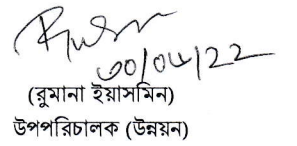 ৩০/০৬/২২
(রুমানা ইয়াসমিন)
উপপরিচালক (উন্নয়ন)